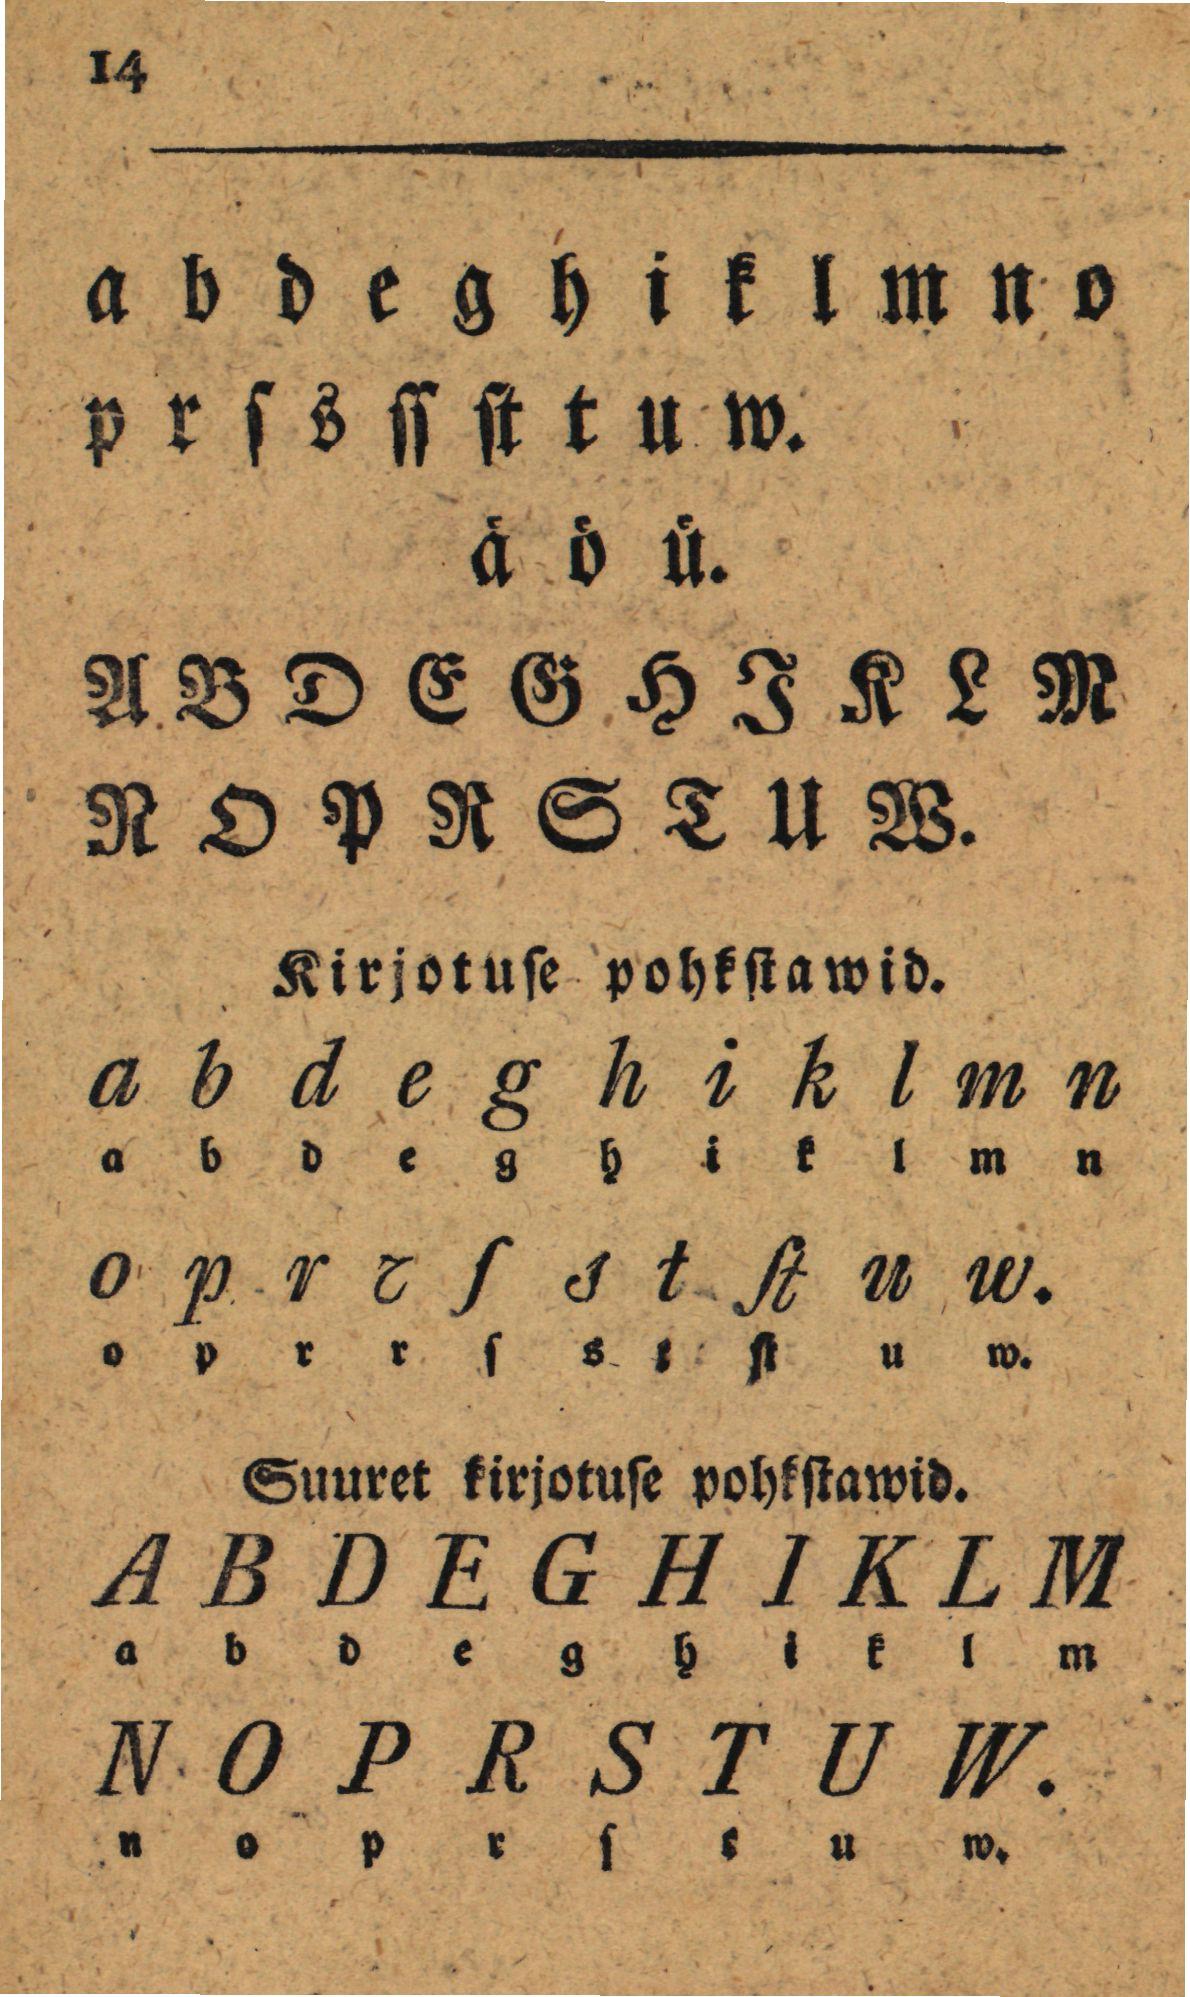 14
a b d e g h i k l m n o
p r ſ s ſſ ſt t u w.
aͤ oͤ uͤ.
A B D E G H I K L M
N O P R S T U W.
Kirjotuſe pohkſtawid.
a b d e g h i k l m n
a b d e g h i k l m n
o p r ꝛ ſ s t ſt u w.
o p r r ſ s t ſt u w.
Suuret kirjotuſe pohkſtawid.
A B D E G H I K L M
a b d e g h i k l m
N O P R S T U W.
n o p r ſ t u w.